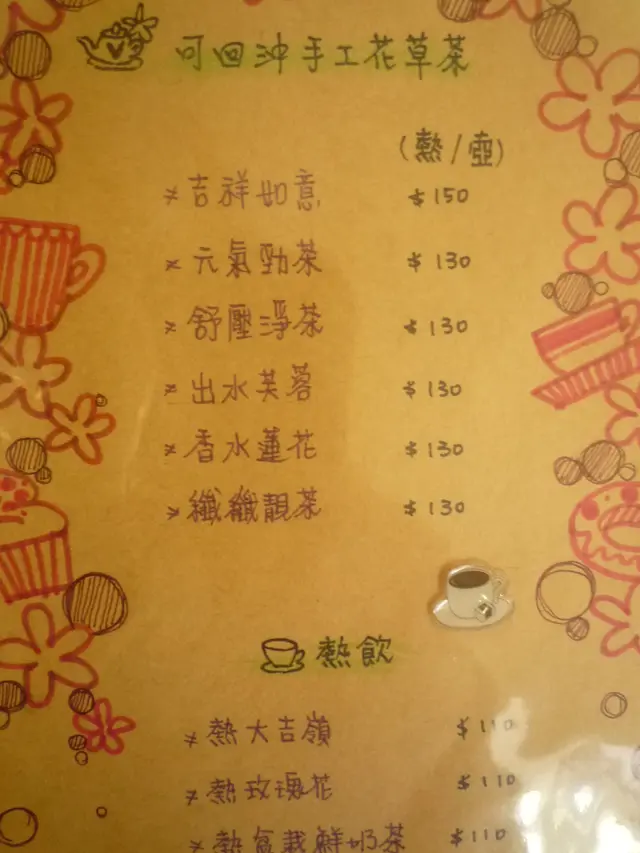 可回沖手工花草茶
(熱/壺)
×吉祥如意 $150
×元氣勁茶 $130
×舒壓淨茶 $130
×出水芙蓉 $130
×香水蓮花 $130
×纖纖靚茶 $130
熱飲
×熱大吉嶺 $110
×熱玫瑰花 $110
×熱盆栽鮮奶茶 $110